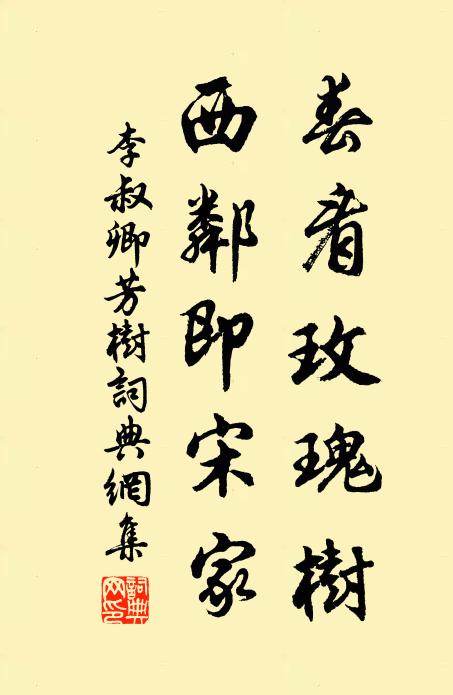 春看玫瑰樹
西鄰即宋家
李叔卿芳樹詞典網集
詞典網印